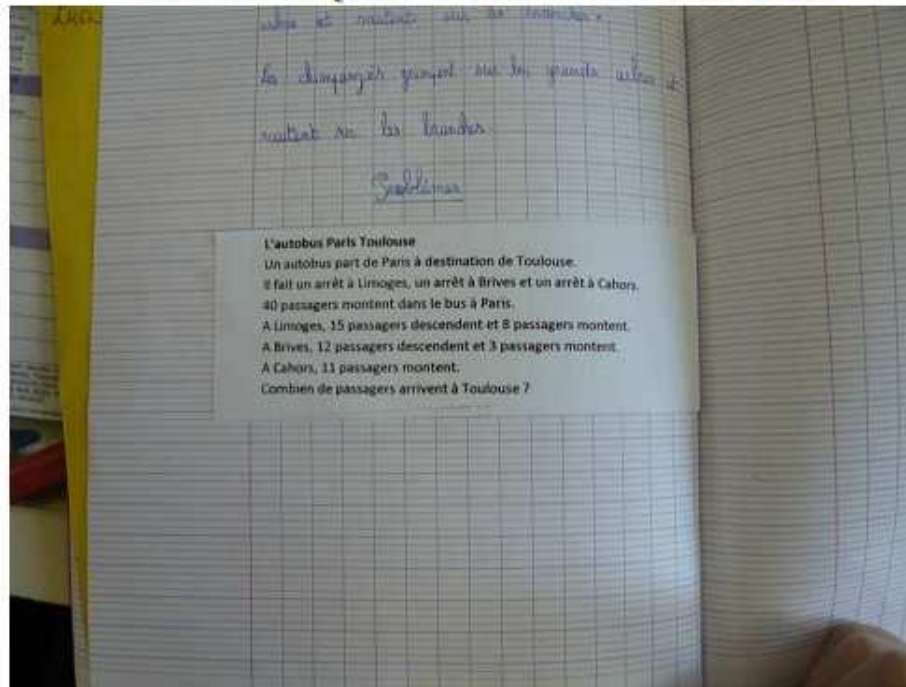 arbres et sautent sur les branches.
Les chimpanzés grimpent sur les grands arbres et
sautent sur les branches.
Problèmes
L'autobus Paris Toulouse
Un autobus part de Paris à destination de Toulouse.
Il fait un arrêt à Limoges, un arrêt à Brives et un arrêt à Cahors.
40 passagers montent dans le bus à Paris.
A Limoges, 15 passagers descendent et 8 passagers montent.
A Brives, 12 passagers descendent et 3 passagers montent.
A Cahors, 11 passagers montent.
Combien de passagers arrivent à Toulouse ?